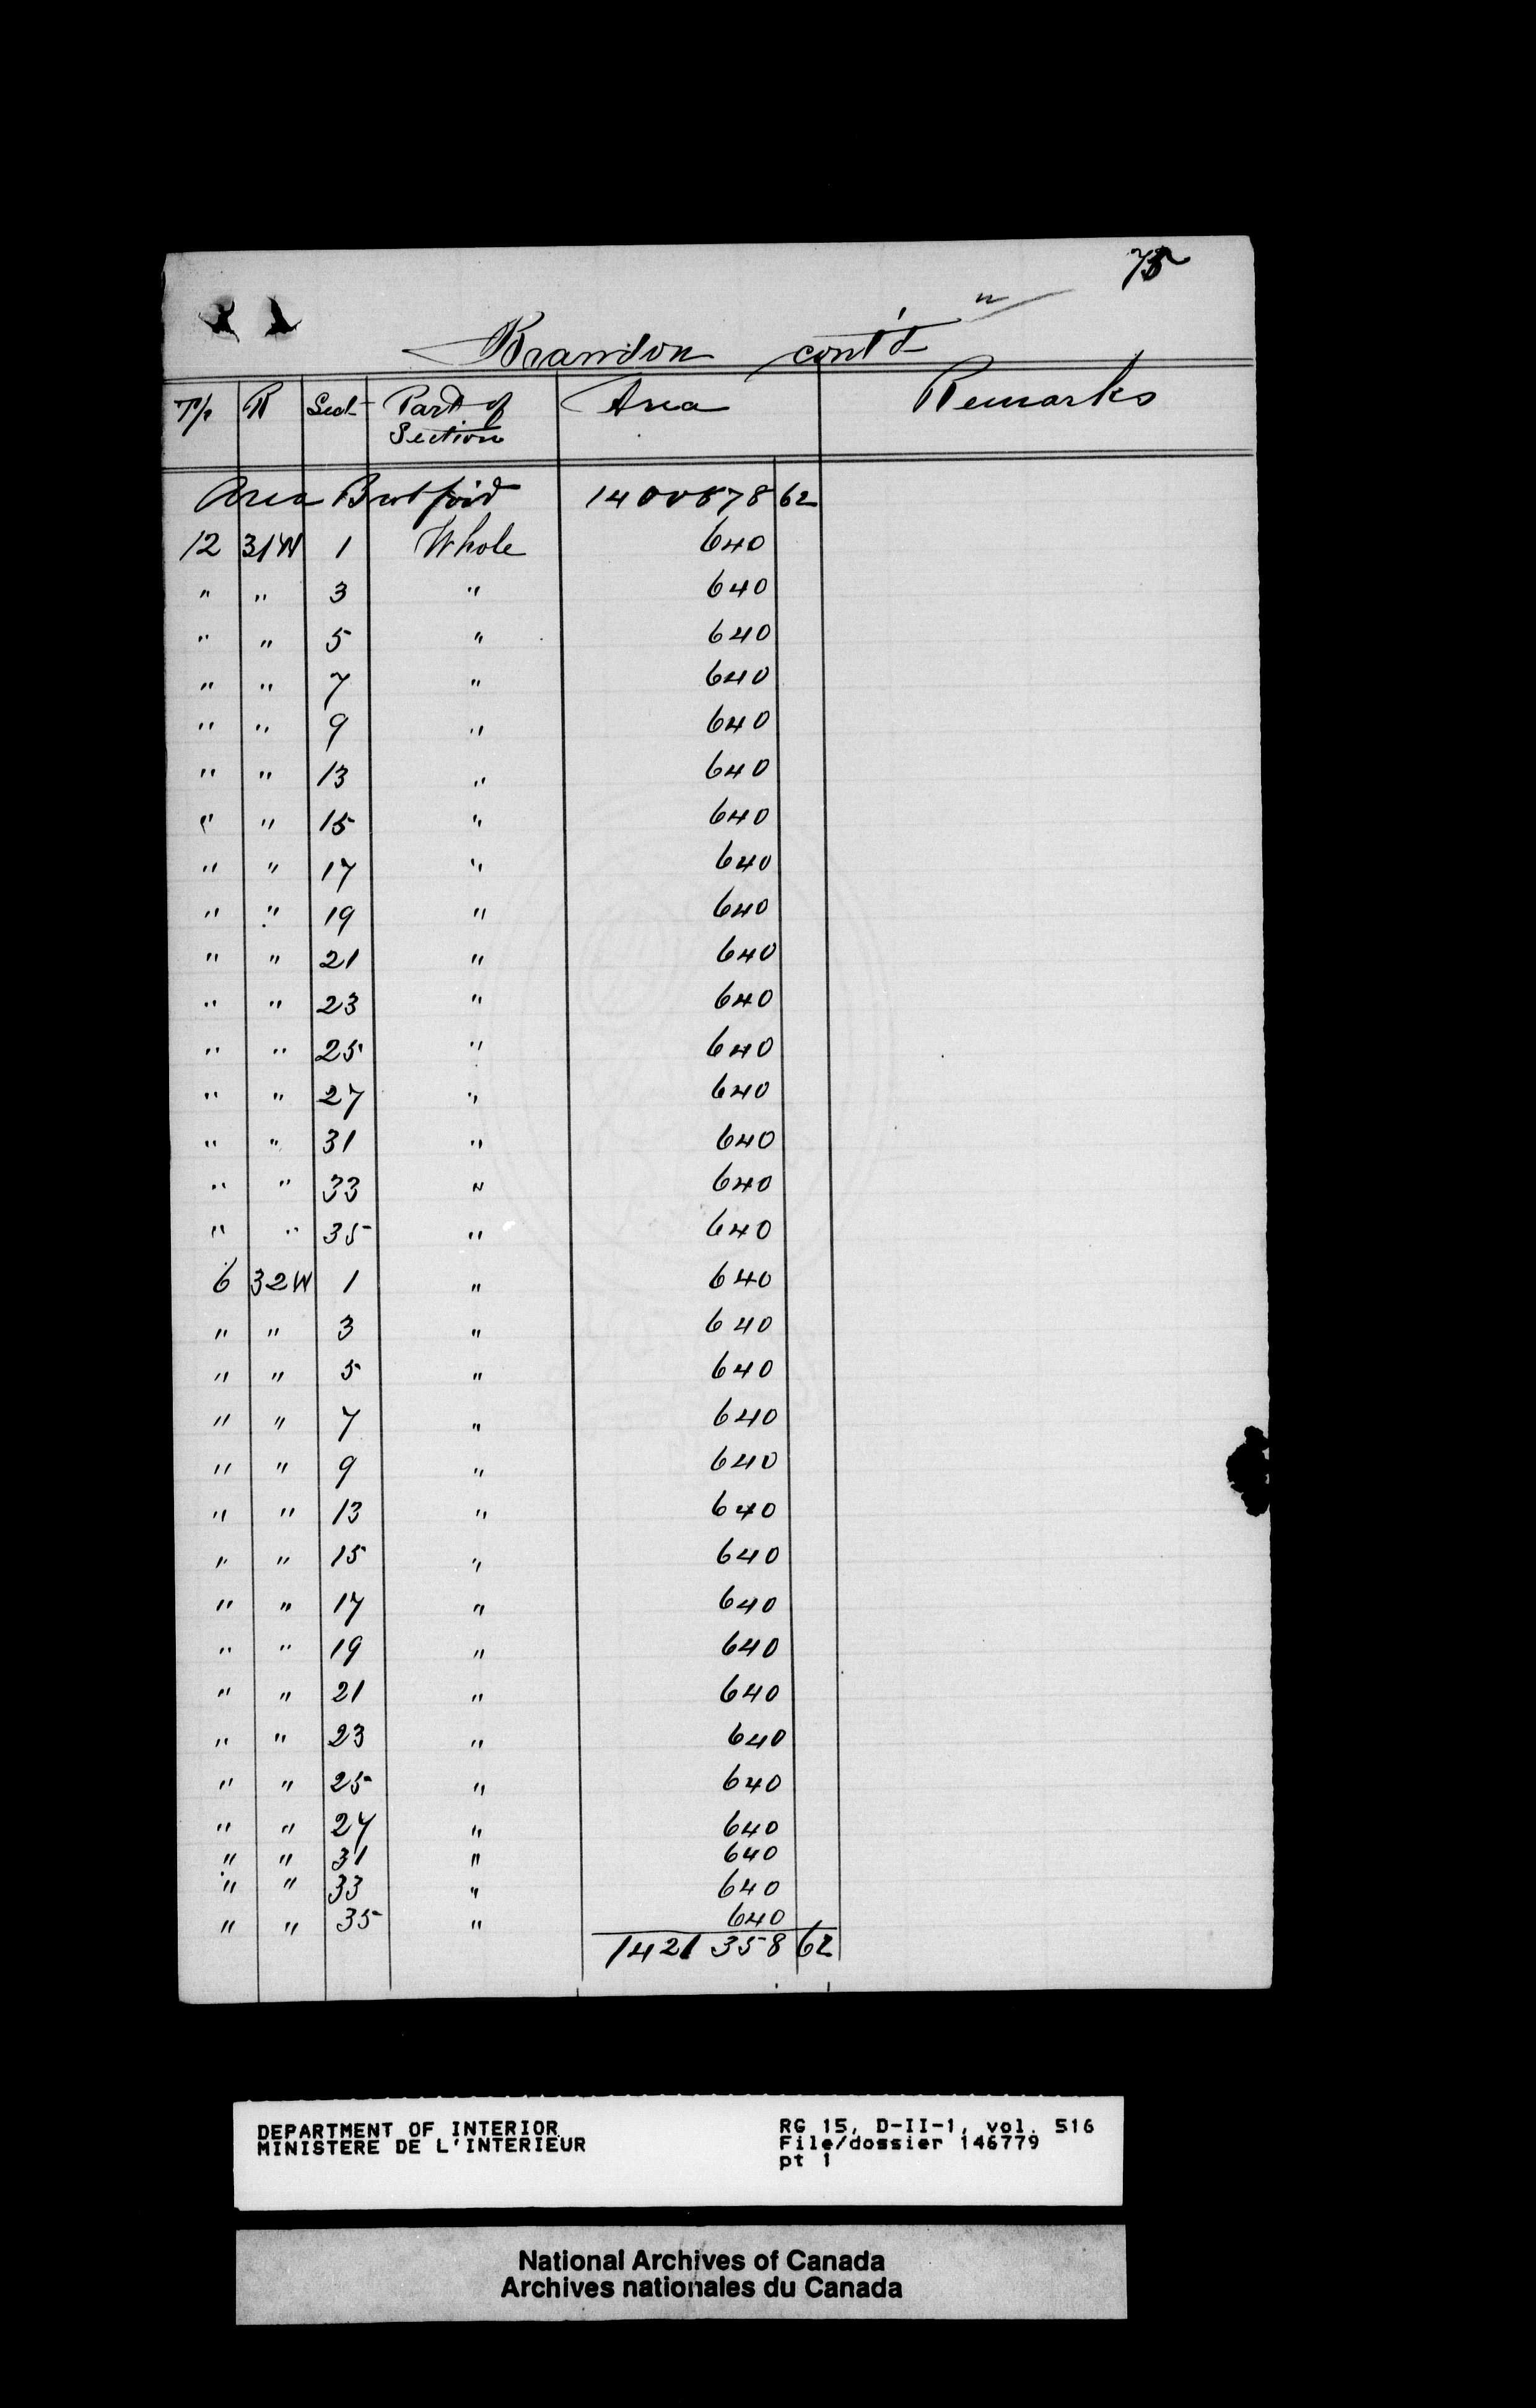 75
"
Brandon cont'd
Tp R Sect Part of Section Area Remarks
Area Brot for'd 1400878 62
12 31W 1 Whole 640
" " 3 " 640
" " 5 " 640
" " 7 " 640
" " 9 " 640
" " 13 " 640
" " 15 " 640
" " 17 " 640
" " 19 " 640
" " 21 " 640
" " 23 " 640
" " 25 " 640
" " 27 " 640
" " 31 " 640
" " 33 " 640
" " 35 " 640
6 32W 1 " 640
" " 3 " 640
" " 5 " 640
" " 7 " 640
" " 9 " 640
" " 13 " 640
" " 15 " 640
" " 17 " 640
" " 19 " 640
" " 21 " 640
" " 23 " 640
" " 25 " 640
" " 27 " 640
" " 31 " 640
" " 33 " 640
" " 35 " 640
1421358 62
DEPARTMENT OF INTERIOR
MINISTERE DE L'INTERIEUR
RG 15, D-II-1, vol. 516
File/dossier 146779
pt 1
National Archives of Canada
Archives nationales du Canada